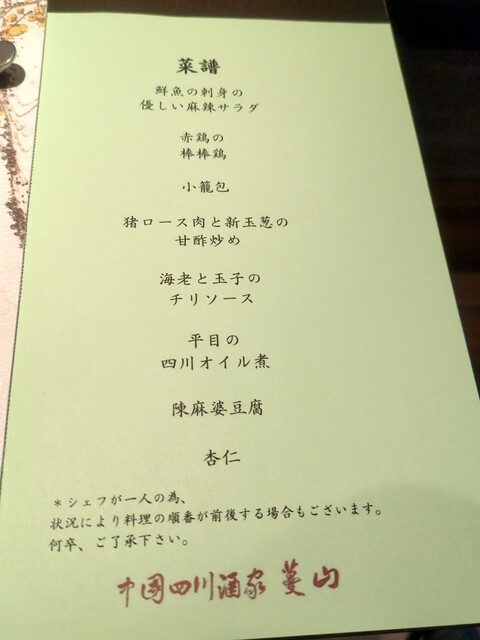 菜譜
鮮魚の刺身の
優しい麻辣サラダ
赤鶏の
棒棒鶏
小籠包
猪ロース肉と新玉葱の
甘酢炒め
海老と玉子の
チリソース
平目の
四川オイル煮
陳麻婆豆腐
杏仁
＊シェフが一人の為、
状況により料理の順番が前後する場合もございます。
何卒、ご了承下さい。
中國四川酒家 蔓山